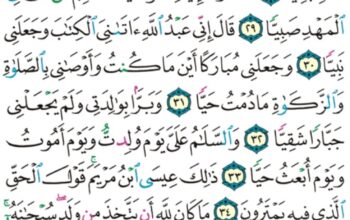 ٱلْمَهْدِ صَبِيًّا ٢٩ قَالَ إِنِّي عَبْدُ ٱللَّهِ ءَاتَىٰنِيَ ٱلْكِتَٰبَ وَجَعَلَنِي
نَبِيًّا ٣٠ وَجَعَلَنِي مُبَارَكًا أَيْنَ مَا كُنتُ وَأَوْصَٰنِي بِٱلصَّلَوٰةِ
وَٱلزَّكَوٰةِ مَا دُمْتُ حَيًّا ٣١ وَبَرًّۢا بِوَٰلِدَتِي وَلَمْ يَجْعَلْنِي
جَبَّارًا شَقِيًّا ٣٢ وَٱلسَّلَٰمُ عَلَيَّ يَوْمَ وُلِدتُّ وَيَوْمَ أَمُوتُ
وَيَوْمَ أُبْعَثُ حَيًّا ٣٣ ذَٰلِكَ عِيسَى ٱبْنُ مَرْيَمَ قَوْلَ ٱلْحَقِّ
ٱلَّذِي فِيهِ يَمْتَرُونَ ٣٤ مَا كَانَ لِلَّهِ أَن يَتَّخِذَ مِن وَلَدٍ سُبْحَٰنَهُۥٓ